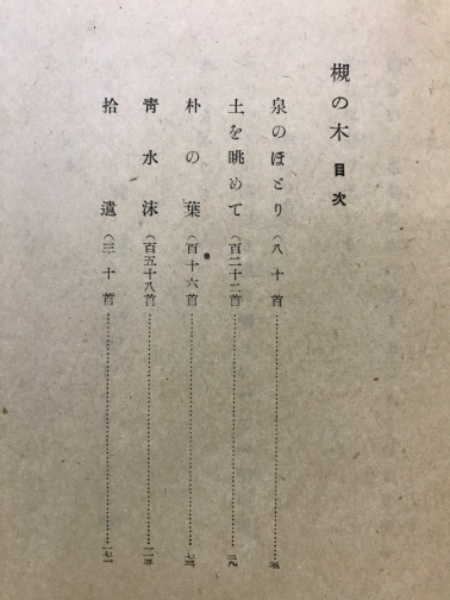 槻の木 目次
泉のほとり（八十首）…………五
土を眺めて（百二十二首）…………二九
朴の葉（百十六首）…………七三
青水沫（百五十八首）…………一一五
拾遺（三十首）…………一七一